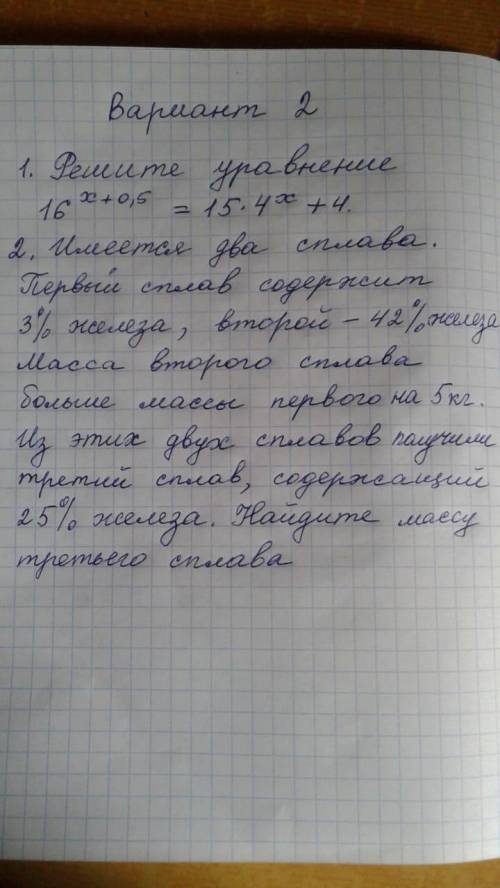 Вариант 2
1. Решите уравнение
16^{x+0,5} = 15·4^x + 4.
2. Имеется два сплава.
Первый сплав содержит
3% железа, второй – 42% железа
Масса второго сплава
больше массы первого на 5 кг.
Из этих двух сплавов получили
третий сплав, содержащий
25% железа. Найдите массу
третьего сплава